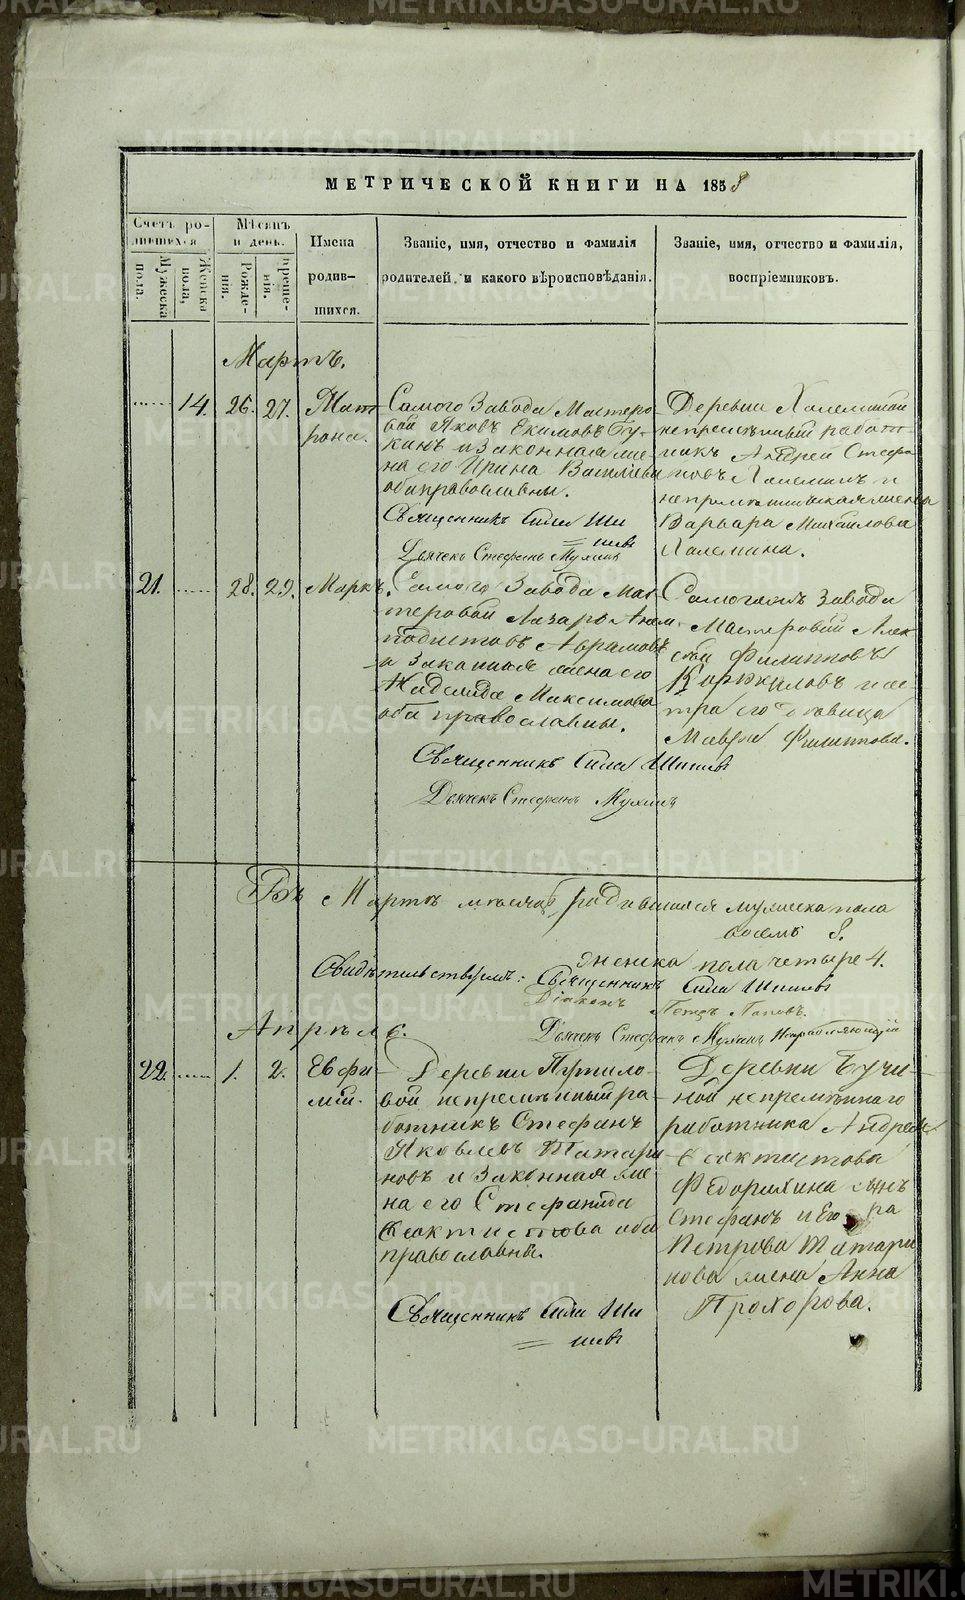 МЕТРИЧЕСКОЙ КНИГИ НА 1858
Счетъ ро-
дившихся
Мужеска
пола.
Женска
пола,
Мѣсяцъ
и день.
Рожде-
нія.
Креще-
нія.
Имена
родив-
шихся.
Званіе, имя, отчество и фамилія
родителей, и какого вѣроисповѣданія.
Званіе, имя, отчество и фамилія,
воспріемниковъ.
Мартъ.
14. 26. 27.
Мат
рона.
Самого Завода Мастеро-
вой Яковъ Екимовъ
и законная же
на его Ирина Василіева
оба православны.
Священникъ Сила Ши
шевъ
Дьячекъ Стефанъ Мухинъ
Деревни
непремѣнный работ
никъ Андрей Стефа
новъ и
жена
Варвара Михайлова
21. 28. 29. Маркъ.
Самого Завода Мас-
теровой Лазарь Анем-
подистовъ Аврамовъ
и Законная жена его
Надежда Максимова
оба православны.
Священникъ Сила Шишевъ
Дьячекъ Стефанъ Мухинъ
Завода
Мастеровой Алек
сѣй Филипповъ
и сес-
тра его девица
Мавра Филипова.
Въ Мартѣ месяцѣ родившихся мужеска пола
восемь 8.
женска пола четыре 4.
Свидѣтельствуемъ: Священникъ Сила Шишевъ
Діаконъ Петръ Поповъ.
Дьячекъ Стефанъ Мухинъ Исправляющій
Апрѣль.
22. 1. 2.
Евфи
мій.
Деревни
вой непремѣнный ра-
ботникъ Стефанъ
Яковлевъ Татари
новъ и Законная же
на его Стефанида
Феоктистова оба
православны.
Священникъ Сила Ши
шевъ
Деревни Бучи-
ной непремѣннаго
работника Андрея
Феоктистова
Федоряхина сынъ
Стефанъ и Его ра
Петрова Татари
нова жена Анна
Прохорова.
METRIKI.GASO-URAL.RU